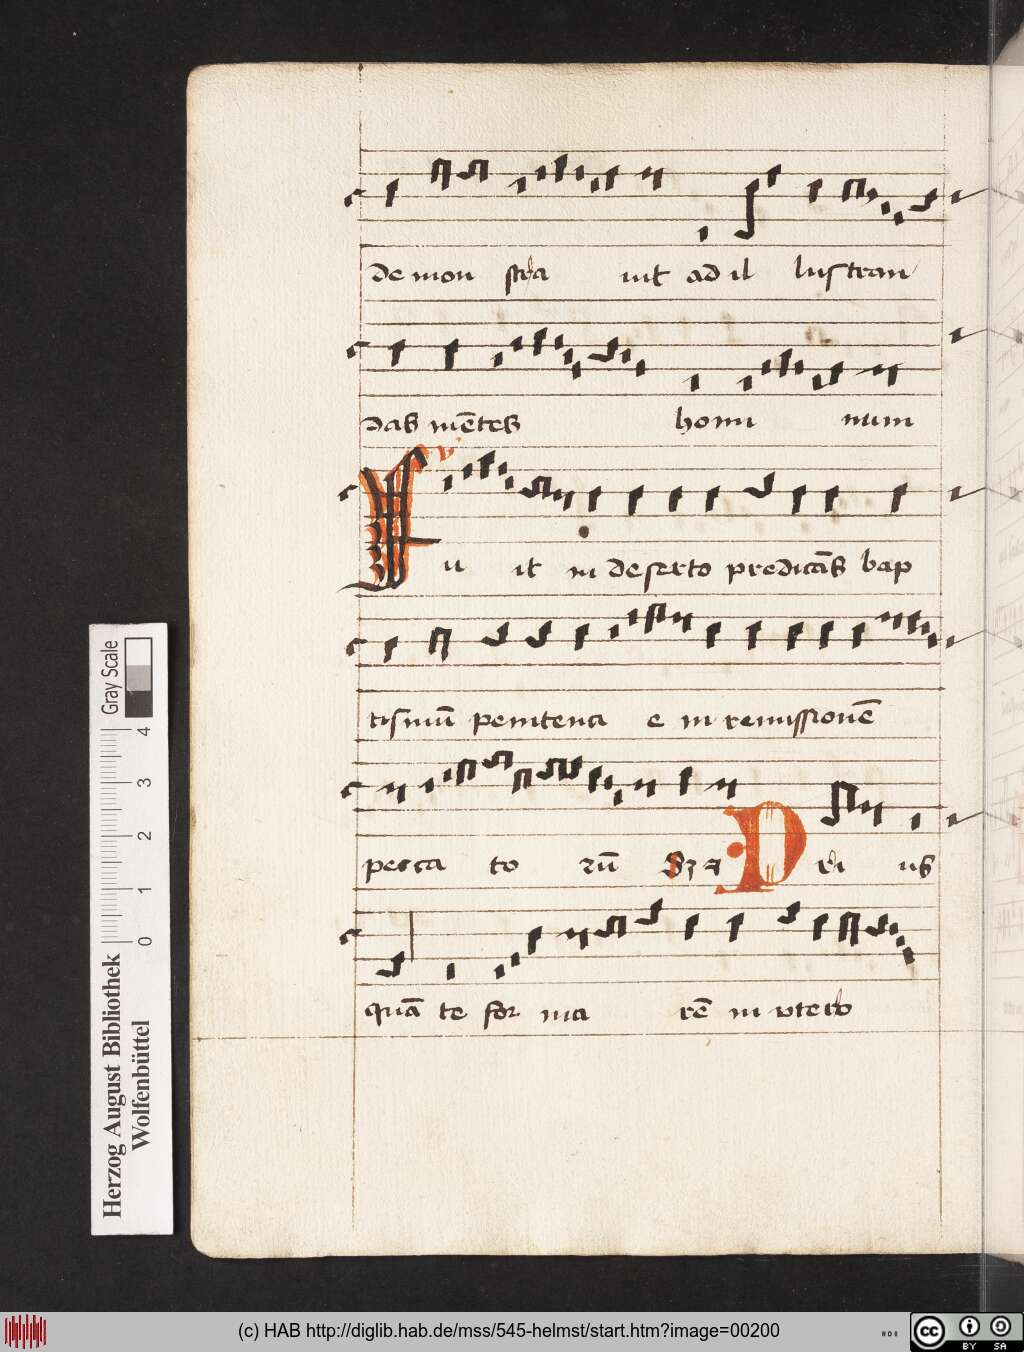 de mon stra uit ad il lustran
das mētes homi num
V
Fu it in deserto predicās bap
tismū penitenci e in remissionē
pecca to rū Sz a Pri us
quā te for ma rē in utero
Gray Scale
4 3 2 1 0
Herzog August Bibliothek
Wolfenbüttel
(c) HAB http://diglib.hab.de/mss/545-helmst/start.htm?image=00200
cc BY SA